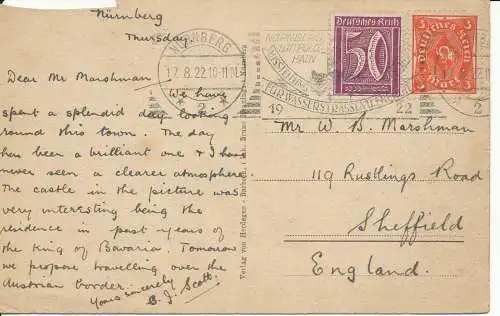 Nürnberg
Thursday.
Dear Mr Marshman
We have
spent a splendid day looking
round this town. The day
has been a brilliant one & I have
never seen a clearer atmosphere.
The castle in the picture was
very interesting being the
residence in past years of
the King of Bavaria. Tomorow
we propose travelling over the
Austrian border.
Yours sincerely
B. J. Scott.
NÜRNBERG
17.8.22.10-11.N.
2
NÜRNBERG
HAIN
FÜR WASSERSTRASSEN
19 22
Deutsches Reich
50
Deutsches Reich
3
3
Verlag von Herdegen
Mr W. B. Marshman
119 Rustlings Road
Sheffield
England.